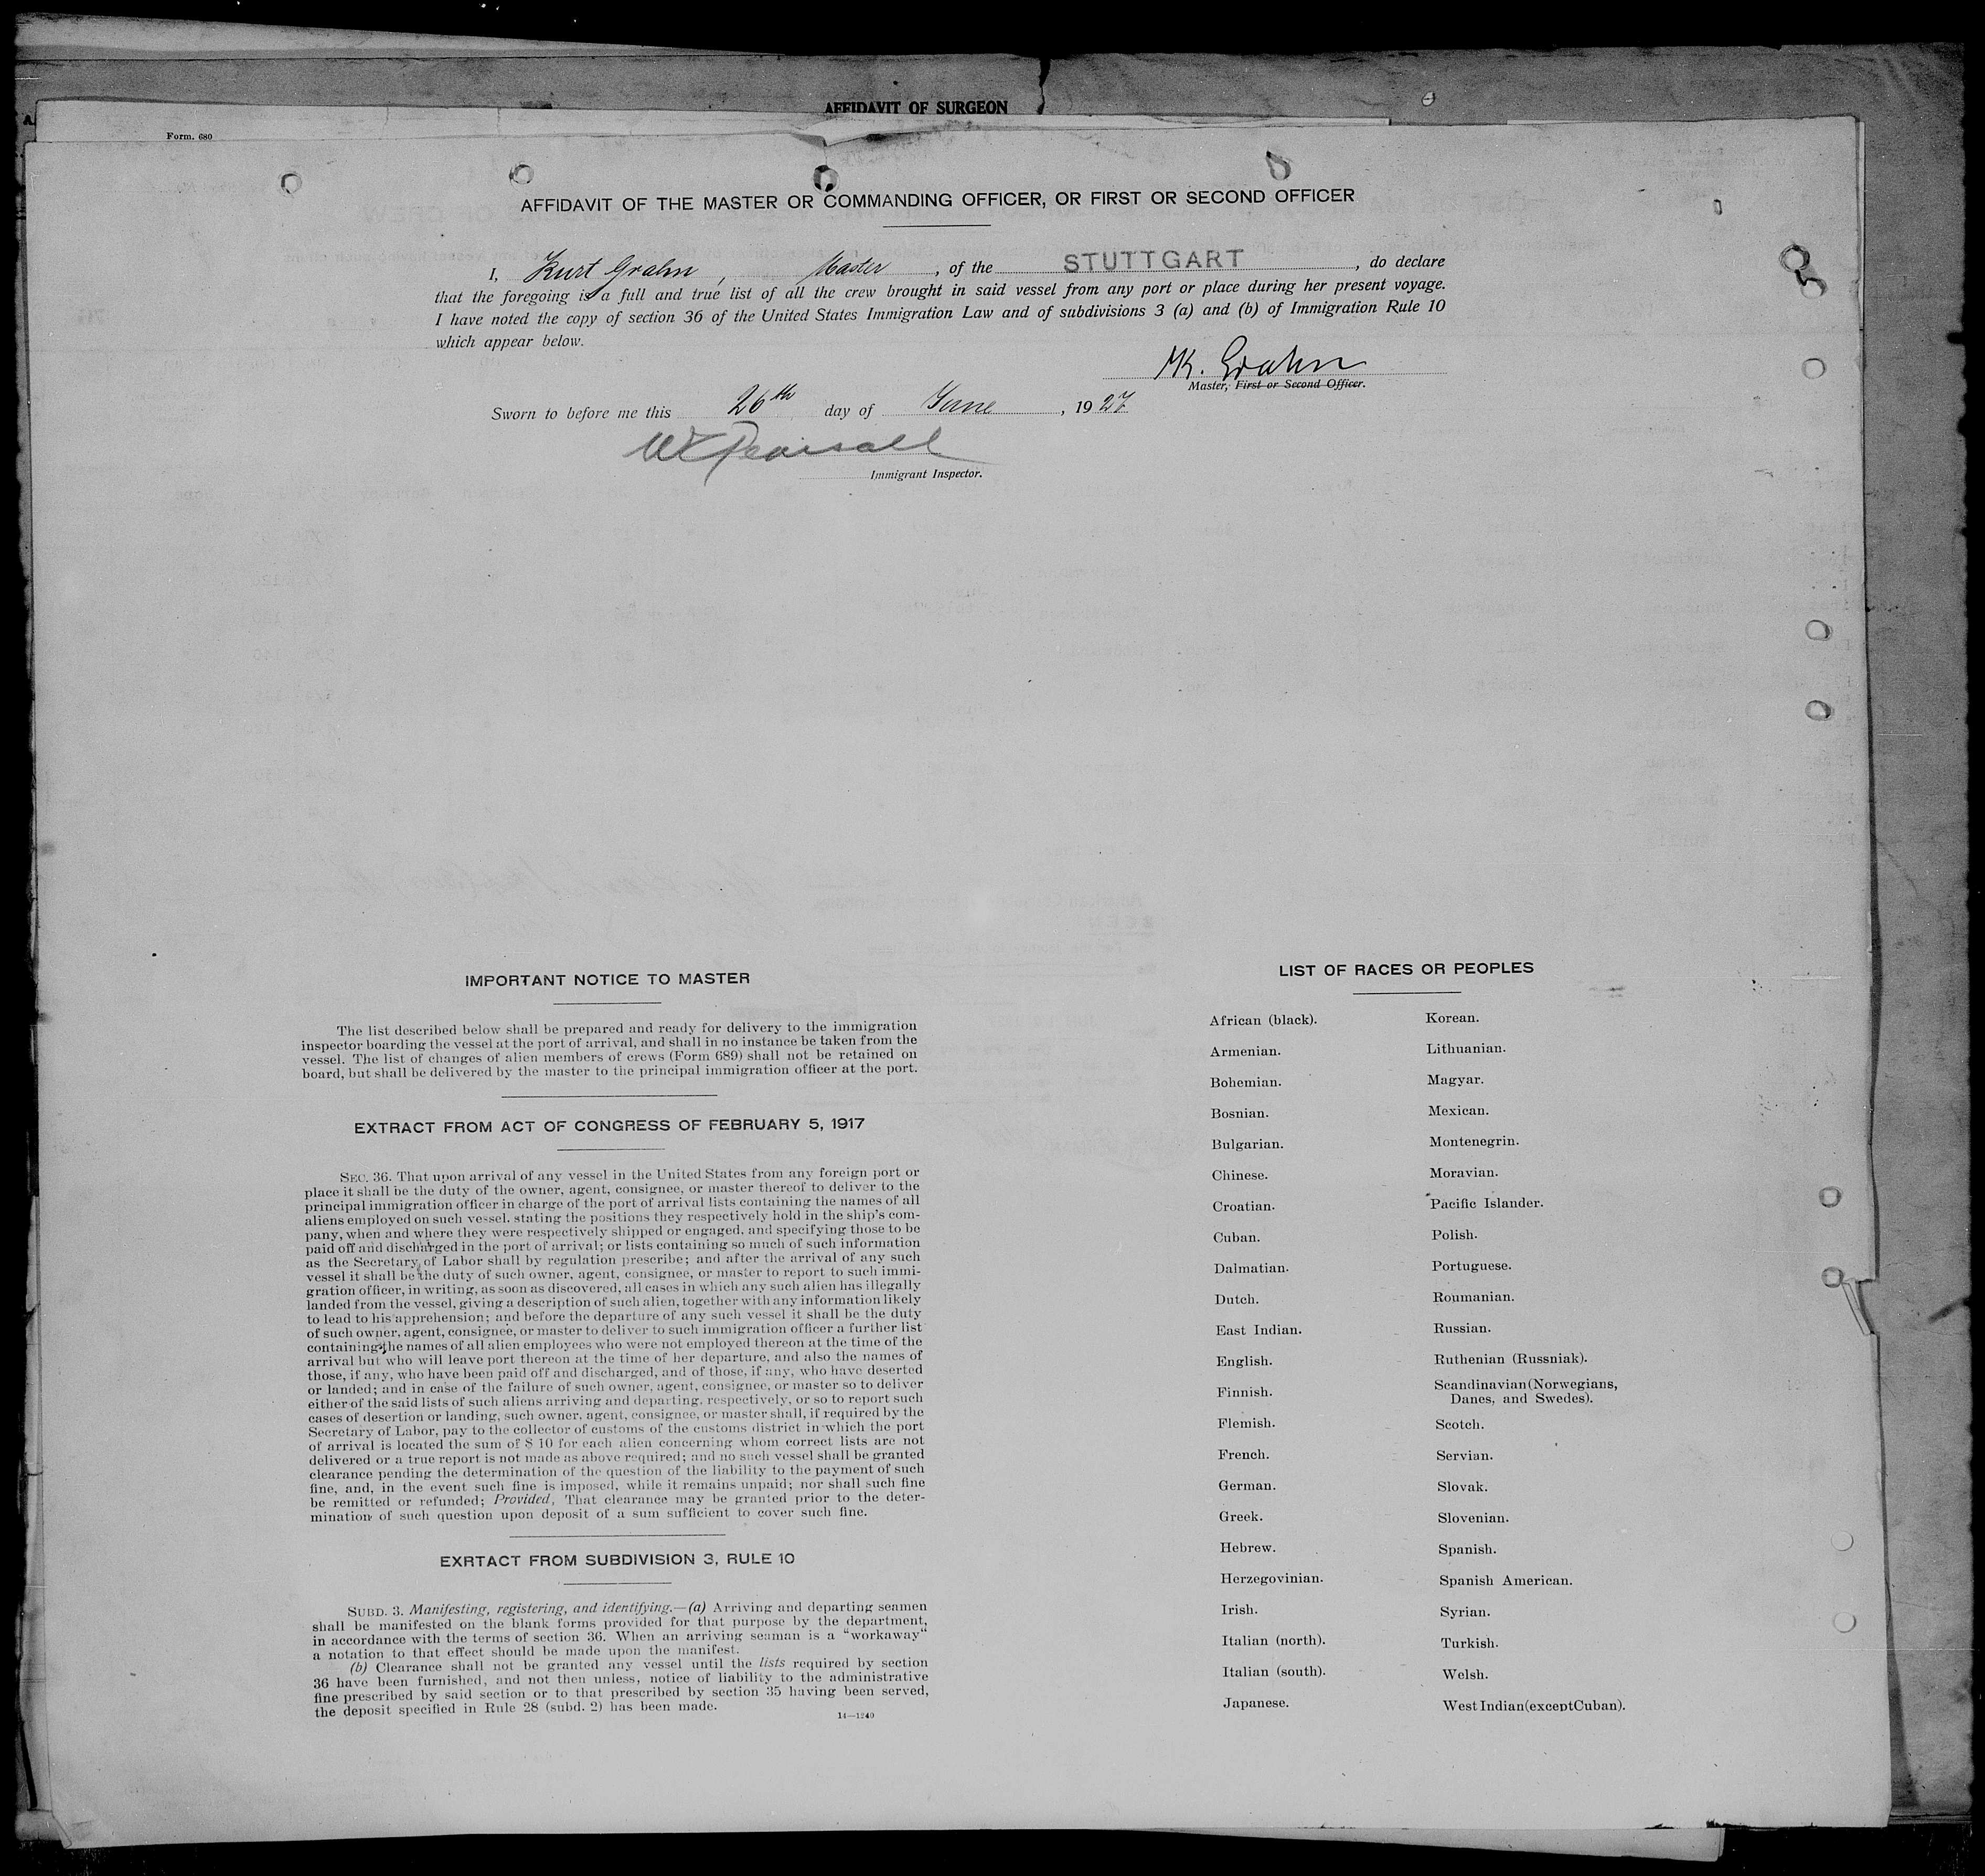 AFFIDAVIT OF SURGEON
Form. 680
AFFIDAVIT OF THE MASTER OR COMMANDING OFFICER, OR FIRST OR SECOND OFFICER
I, Kurt Grahn, Master, of the STUTTGART, do declare
that the foregoing is a full and true list of all the crew brought in said vessel from any port or place during her present voyage.
I have noted the copy of section 36 of the United States Immigration Law and of subdivisions 3 (a) and (b) of Immigration Rule 10
which appear below.
K. Grahn
Master, First or Second Officer.
Sworn to before me this 26th day of June, 1927
Pearsall
Immigrant Inspector.
IMPORTANT NOTICE TO MASTER
The list described below shall be prepared and ready for delivery to the immigration
inspector boarding the vessel at the port of arrival, and shall in no instance be taken from the
vessel. The list of changes of alien members of crews (Form 689) shall not be retained on
board, but shall be delivered by the master to the principal immigration officer at the port.
EXTRACT FROM ACT OF CONGRESS OF FEBRUARY 5, 1917
SEC. 36. That upon arrival of any vessel in the United States from any foreign port or
place it shall be the duty of the owner, agent, consignee, or master thereof to deliver to the
principal immigration officer in charge of the port of arrival lists containing the names of all
aliens employed on such vessel. stating the positions they respectively hold in the ship's com-
pany, when and where they were respectively shipped or engaged, and specifying those to be
paid off and discharged in the port of arrival; or lists containing so much of such information
as the Secretary of Labor shall by regulation prescribe; and after the arrival of any such
vessel it shall be the duty of such owner, agent, consignee, or master to report to such immi-
gration officer, in writing, as soon as discovered, all cases in which any such alien has illegally
landed from the vessel, giving a description of such alien, together with any information likely
to lead to his apprehension; and before the departure of any such vessel it shall be the duty
of such owner, agent, consignee, or master to deliver to such immigration officer a further list
containing the names of all alien employees who were not employed thereon at the time of the
arrival but who will leave port thereon at the time of her departure, and also the names of
those, if any, who have been paid off and discharged, and of those, if any, who have deserted
or landed; and in case of the failure of such owner, agent, consignee, or master so to deliver
either of the said lists of such aliens arriving and departing, respectively, or so to report such
cases of desertion or landing, such owner, agent, consignee, or master shall, if required by the
Secretary of Labor, pay to the collector of customs of the customs district in which the port
of arrival is located the sum of $ 10 for each alien concerning whom correct lists are not
delivered or a true report is not made as above required; and no such vessel shall be granted
clearance pending the determination of the question of the liability to the payment of such
fine, and, in the event such fine is imposed, while it remains unpaid; nor shall such fine
be remitted or refunded; Provided, That clearance may be granted prior to the deter-
mination of such question upon deposit of a sum sufficient to cover such fine.
EXRTACT FROM SUBDIVISION 3, RULE 10
SUBD. 3. Manifesting, registering, and identifying.—(a) Arriving and departing seamen
shall be manifested on the blank forms provided for that purpose by the department,
in accordance with the terms of section 36. When an arriving seaman is a “workaway“
a notation to that effect should be made upon the manifest.
(b) Clearance shall not be granted any vessel until the lists required by section
36 have been furnished, and not then unless, notice of liability to the administrative
fine prescribed by said section or to that prescribed by section 35 having been served,
the deposit specified in Rule 28 (subd. 2) has been made.
14—1240
LIST OF RACES OR PEOPLES
African (black).
Armenian.
Bohemian.
Bosnian.
Bulgarian.
Chinese.
Croatian.
Cuban.
Dalmatian.
Dutch.
East Indian.
English.
Finnish.
Flemish.
French.
German.
Greek.
Hebrew.
Herzegovinian.
Irish.
Italian (north).
Italian (south).
Japanese.
Korean.
Lithuanian.
Magyar.
Mexican.
Montenegrin.
Moravian.
Pacific Islander.
Polish.
Portuguese.
Roumanian.
Russian.
Ruthenian (Russniak).
Scandinavian(Norwegians,
Danes, and Swedes).
Scotch.
Servian.
Slovak.
Slovenian.
Spanish.
Spanish American.
Syrian.
Turkish.
Welsh.
West Indian(except Cuban).